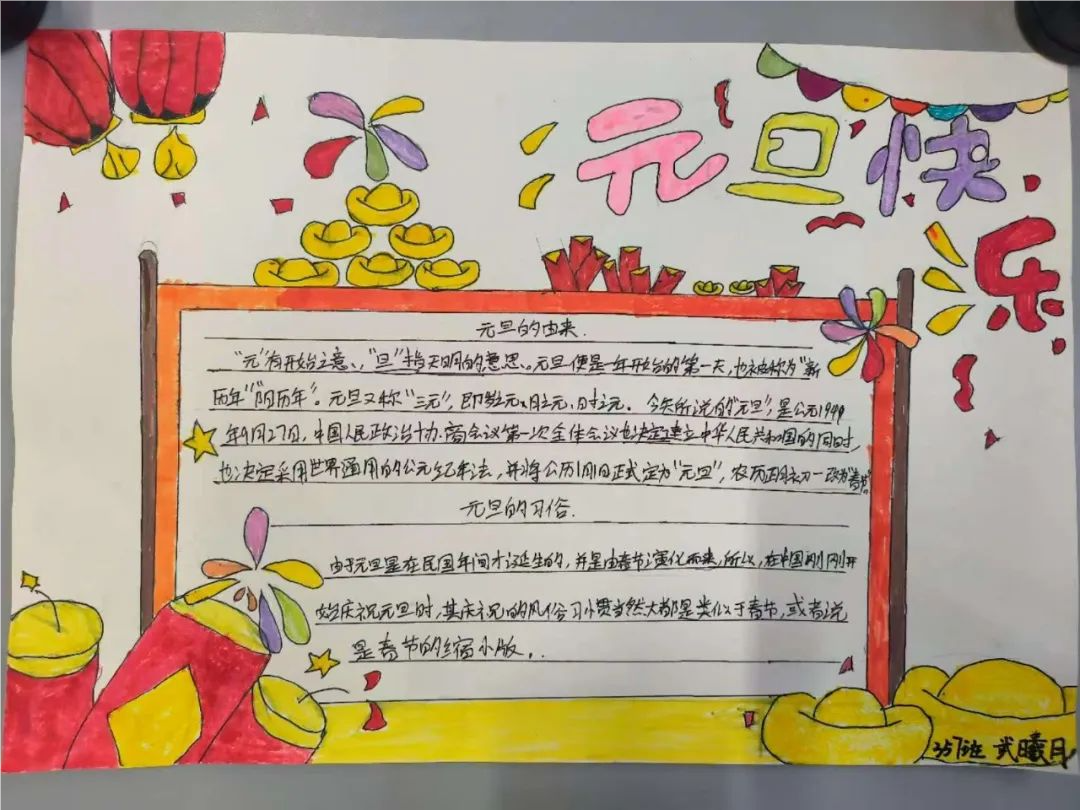 元旦快乐
元旦的由来.
“元”有开始之意、“旦”指天明的意思。元旦便是一年开始的第一天,也被称为“新
历年”“阳历年”。元旦又称“三元”,即岁之元、月之元、时之元。今天所说的“元旦”,是公元1949
年9月27日,中国人民政治协商会议第一次全体会议也决定建立中华人民共和国的同时,
也决定采用世界通用的公元纪年法,并将公历1月1日正式定为“元旦”,农历正月初一改为“春节”
元旦的习俗.
由于元旦是在民国年间才诞生的,并是由春节演化而来,所以,在中国刚刚开
始庆祝元旦时,其庆祝的风俗习惯当然大都是类似于春节,或者说
是春节的缩小版..
357班 武曦月